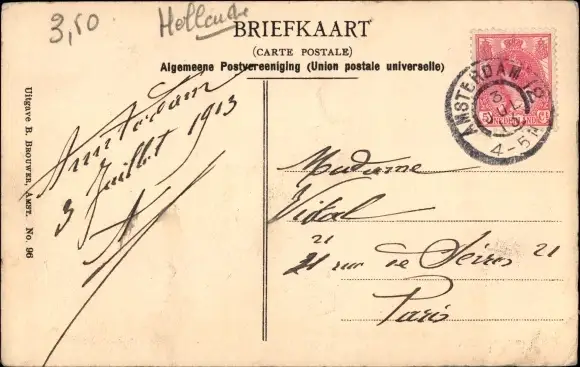 3,50
Hollande
BRIEFKAART
(CARTE POSTALE)
Algemeene Postvereeniging (Union postale universelle)
AMSTERDAM
4-5N
NEDERLAND
Amsterdam
3 Juillet 1913
Madame
Vidal
21
21 rue de 21
Paris
Uitgave B. BROUWER, AMST. No. 96